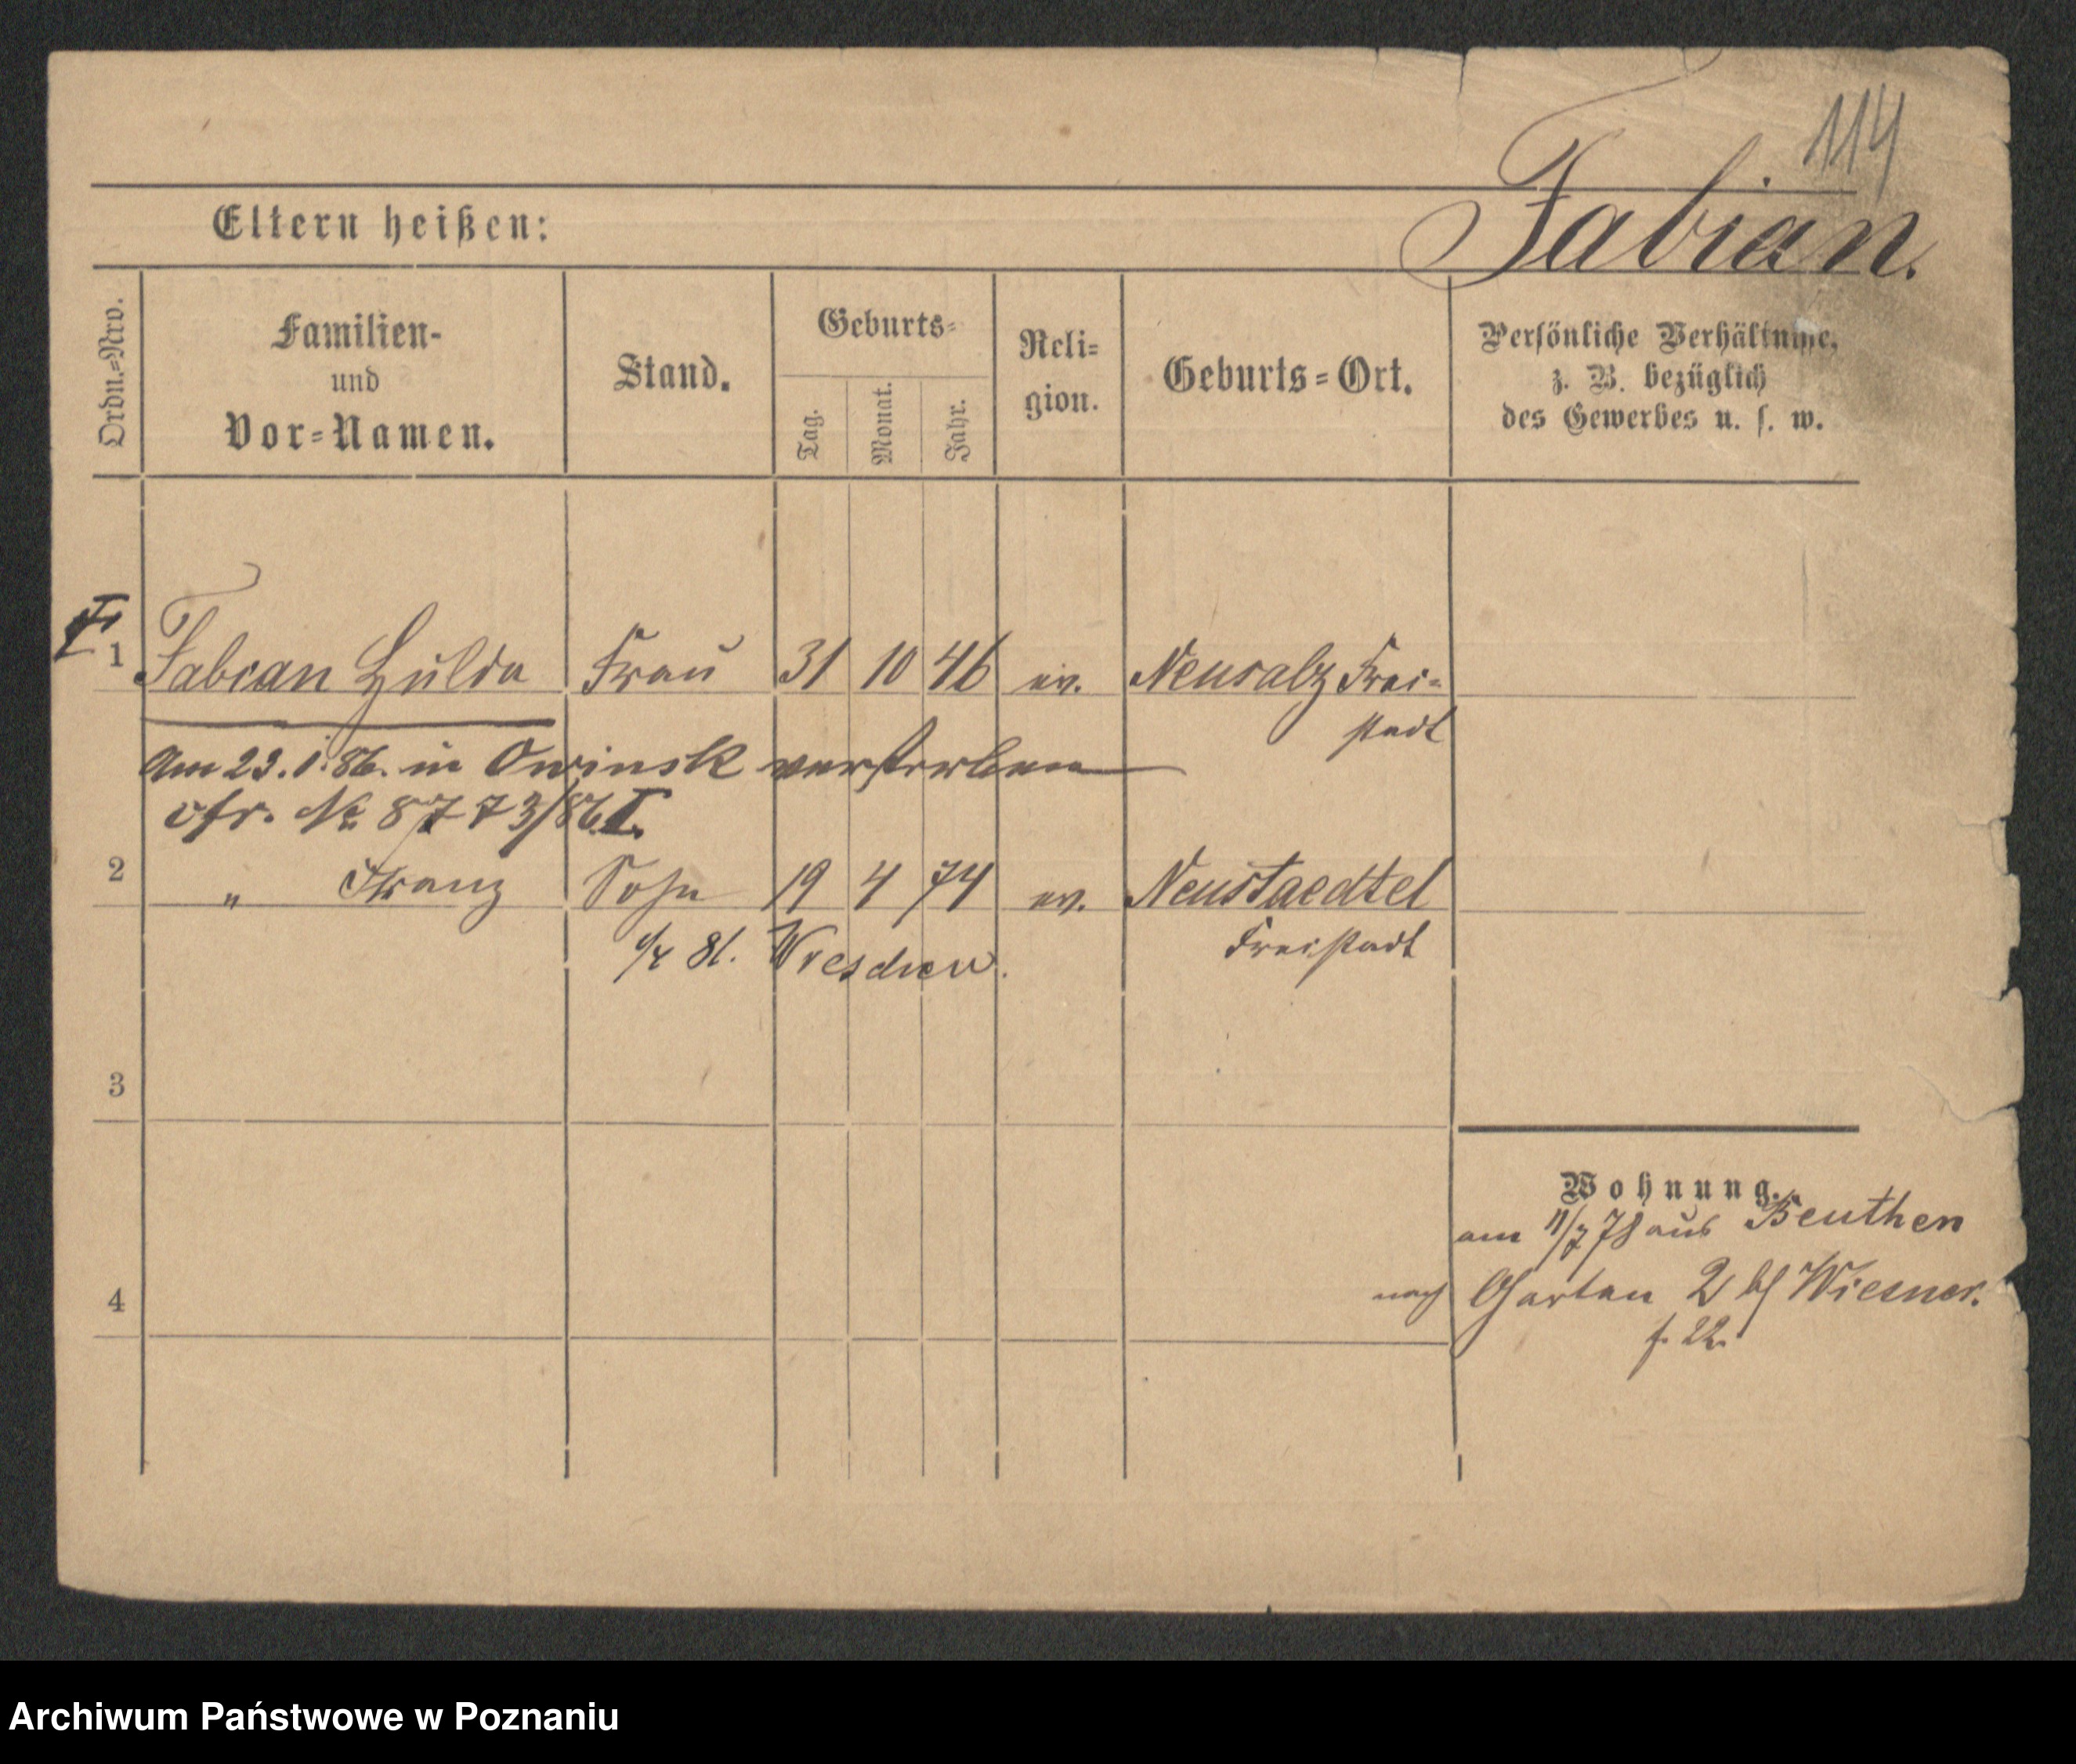 114
Fabian.
Eltern heißen:
Ordn.=Nro.
Familien-
und
Vor=Namen.
Stand.
Geburts=
Tag.
Monat.
Jahr.
Reli=
gion.
Geburts=Ort.
Persönliche Verhältnisse,
z. B. bezüglich
des Gewerbes u. s. w.
1 Fabian Hulda Frau 31 10 46 ev. Neusalz Frei=
stadt
Am 23. 1. 86. in Owinsk verstorben
cfr. No. 8773/86.I.
2 " Franz Sohn 19 4 74 ev. Neustaedtel
Freistadt
81. Wreschen.
3
Wohnung.
am 11/7 78 aus Beuthen
4
nach Garten 2 bf Wiesner.
f. 22.
Archiwum Państwowe w Poznaniu